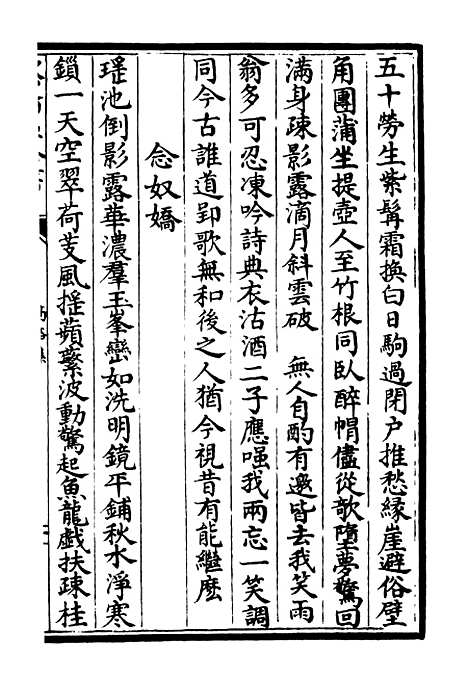 五十勞生紫髯霜換白日駒過閉户推愁緣崖避俗壁
角團蒲坐提壺人至竹根同臥醉帽儘從欹墮夢驚回
滿身疎影露滴月斜雲破　無人自酌有邀皆去我笑兩
翁多可忍凍吟詩典衣沽酒二子應嗤我兩忘一笑調
同今古誰道郢歌無和後之人猶今視昔有能繼麽
念奴嬌
瑤池倒影露華濃羣玉峯巒如洗明鏡平鋪秋水淨寒
鎖一天空翠荷芰風搖蘋蘩波動驚起魚龍戲扶疎桂